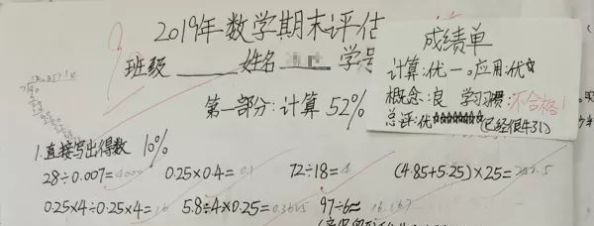 2019年数学期末评估
班级 姓名 学号
成绩单
计算:优一。应用:优☆
概念:良 学习习惯:不合格!
总评:优☆☆☆☆☆☆☆(已经很牛了)
第一部分:计算 52%
1.直接写出得数 10%
28÷0.007=4000 0.25×0.4=0.1 72÷18=4 (4.85+5.25)×25=252.5
0.25×4÷0.25×4=16 5.8÷4×0.25=0.3625 97÷6≈16.167